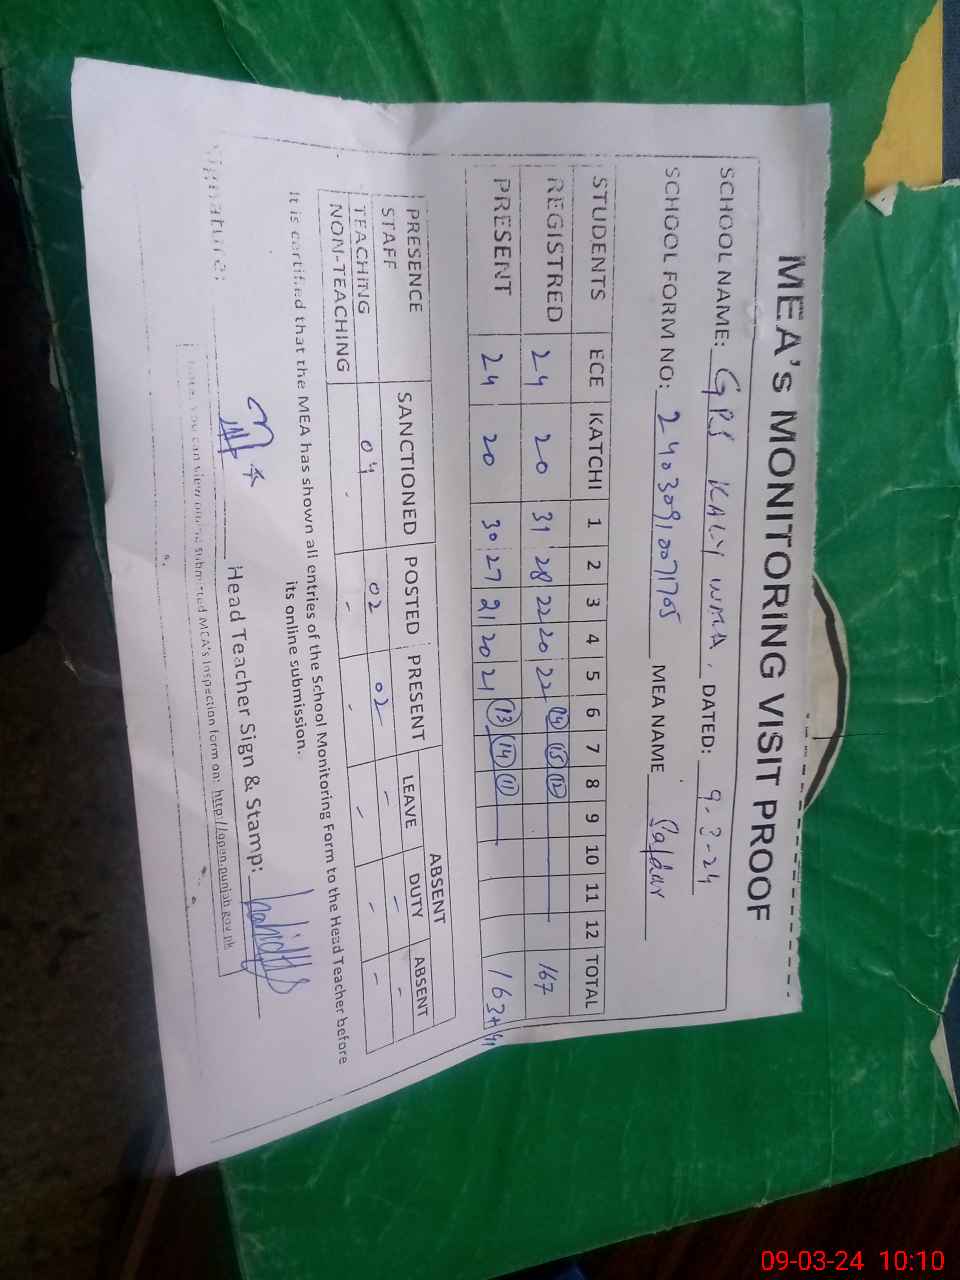 MEA's MONITORING VISIT PROOF
SCHOOL NAME: GPS KALY WALA, DATED: 9.3-24
SCHOOL FORM NO: 2403091007170S MEA NAME Safdar
STUDENTS ECE KATCHI 1 2 3 4 5 6 7 8 9 10 11 12 TOTAL
REGISTRED 24 20 31 28 22 20 22 14 15 12 167
PRESENT 24 20 30 27 21 20 21 13 14 11 163+41
PRESENCE SANCTIONED POSTED PRESENT ABSENT
STAFF LEAVE DUTY ABSENT
TEACHING 04 02 02 - - -
NON-TEACHING - - - - - -
It is cartified that the MEA has shown all entries of the School Monitoring Form to the Head Teacher before
its online submission.
Signature: Head Teacher Sign & Stamp:
Note: You can view online submitted MEA's Inspection form on: http://open.punjab.gov.pk
09-03-24 10:10